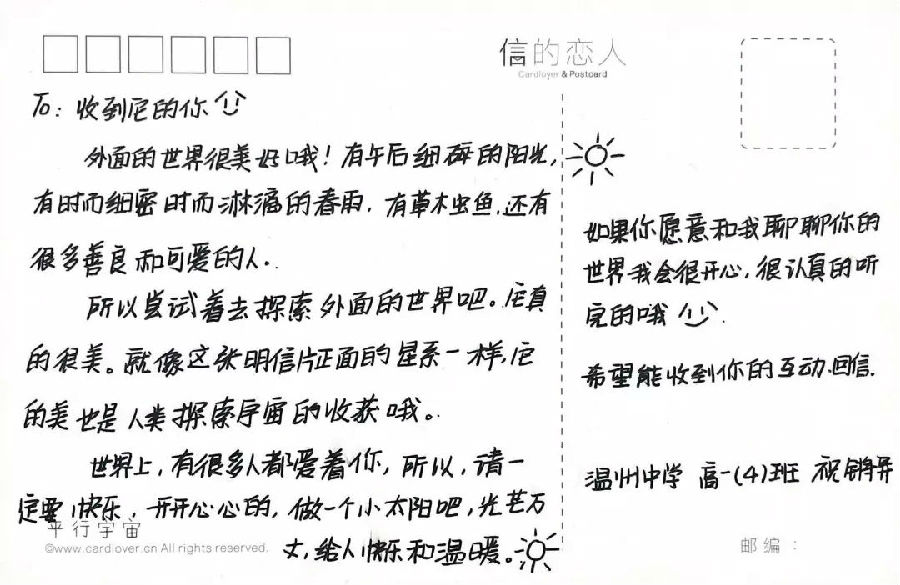 信的恋人
Cardlover & Postcard
To: 收到它的你
外面的世界很美好哦！有午后细碎的阳光,
有时而细密时而淋漓的春雨, 有草木虫鱼, 还有
很多善良和可爱的人.
所以尝试着去探索外面的世界吧。它真
的很美。就像这张明信片正面的星系一样, 它
的美也是人类探索宇宙的收获哦。
世界上, 有很多人都爱着你, 所以, 请一
定要快乐, 开开心心的, 做一个小太阳吧, 光芒万
丈, 给人快乐和温暖。
平行宇宙
©www.cardlover.cn All rights reserved.
如果你愿意和我聊聊你的
世界我会很开心, 很认真的听
完的哦
希望能收到你的互动.回信.
温州中学 高一(4)班 祝
邮编：